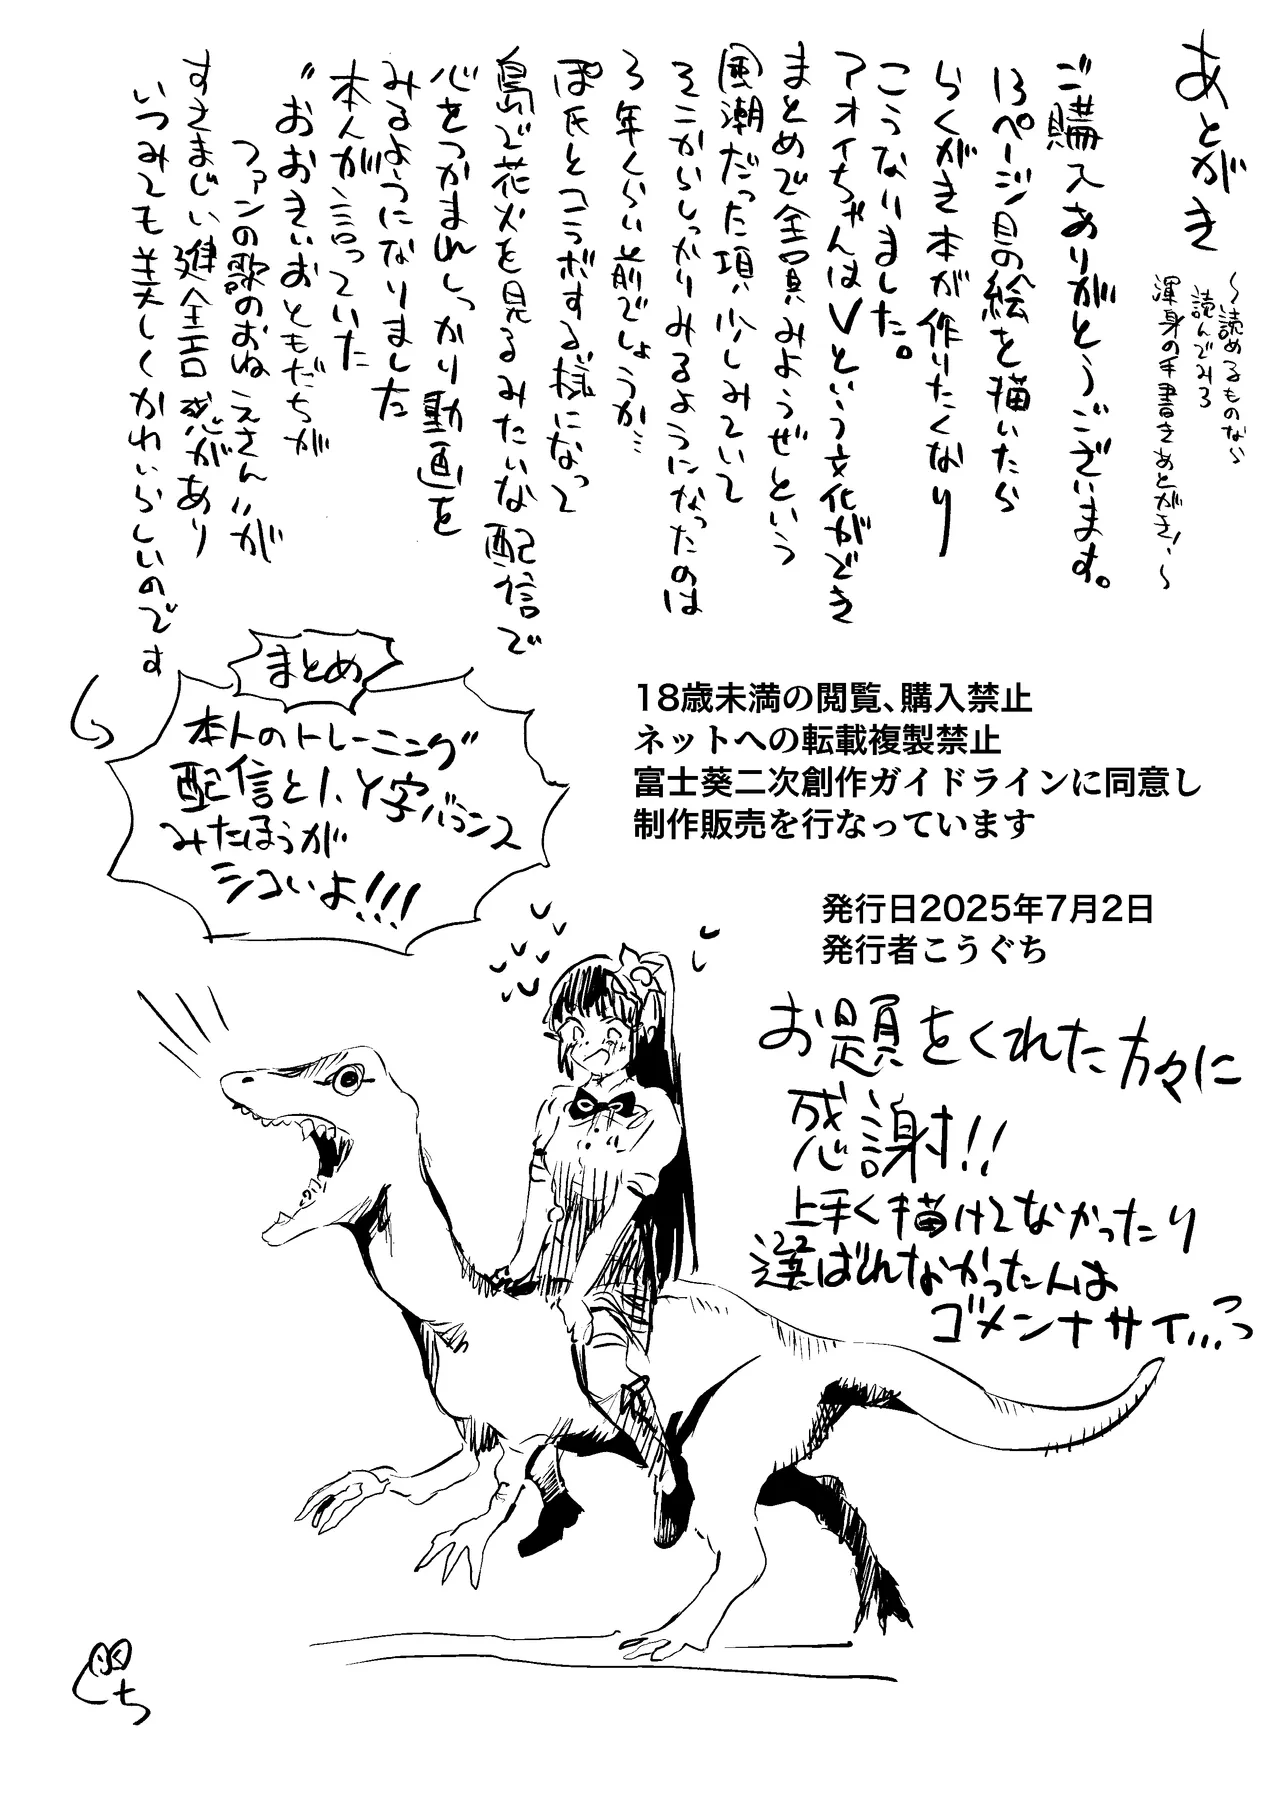 あとがき
～読めるものなら
読んでみろ
渾身の手書きあとがき!～
ご購入ありがとうございます。
13ページ目の絵を描いたら
らくがき本が作りたくなり
こうなりました。
アオイちゃんはVという文化ができ
まとめで全員みようぜという
風潮だった頃少しみていて
そこからしっかりみるようになったのは
3年くらい前でしょうか…
ぽ氏とコラボする様になって
島で花火を見るみたいな配信で
心をつかまれしっかり動画を
みるようになりました
本人が言っていた
"おおきいおともだちが
ファンの歌のおねえさん"が
すさまじい進全言感があり
いつみても美しくかわいらしいのです
まとめ
本人のトレーニング
配信とI、Y字バランス
みたほうが
シコいよ!!!
18歳未満の閲覧、購入禁止
ネットへの転載複製禁止
富士葵二次創作ガイドラインに同意し
制作販売を行なっています
発行日2025年7月2日
発行者こうぐち
お題をくれた方々に
感謝!!
上手く描けてなかったり
選ばれなかったんは
ゴメンナサイ…っ
ぐち